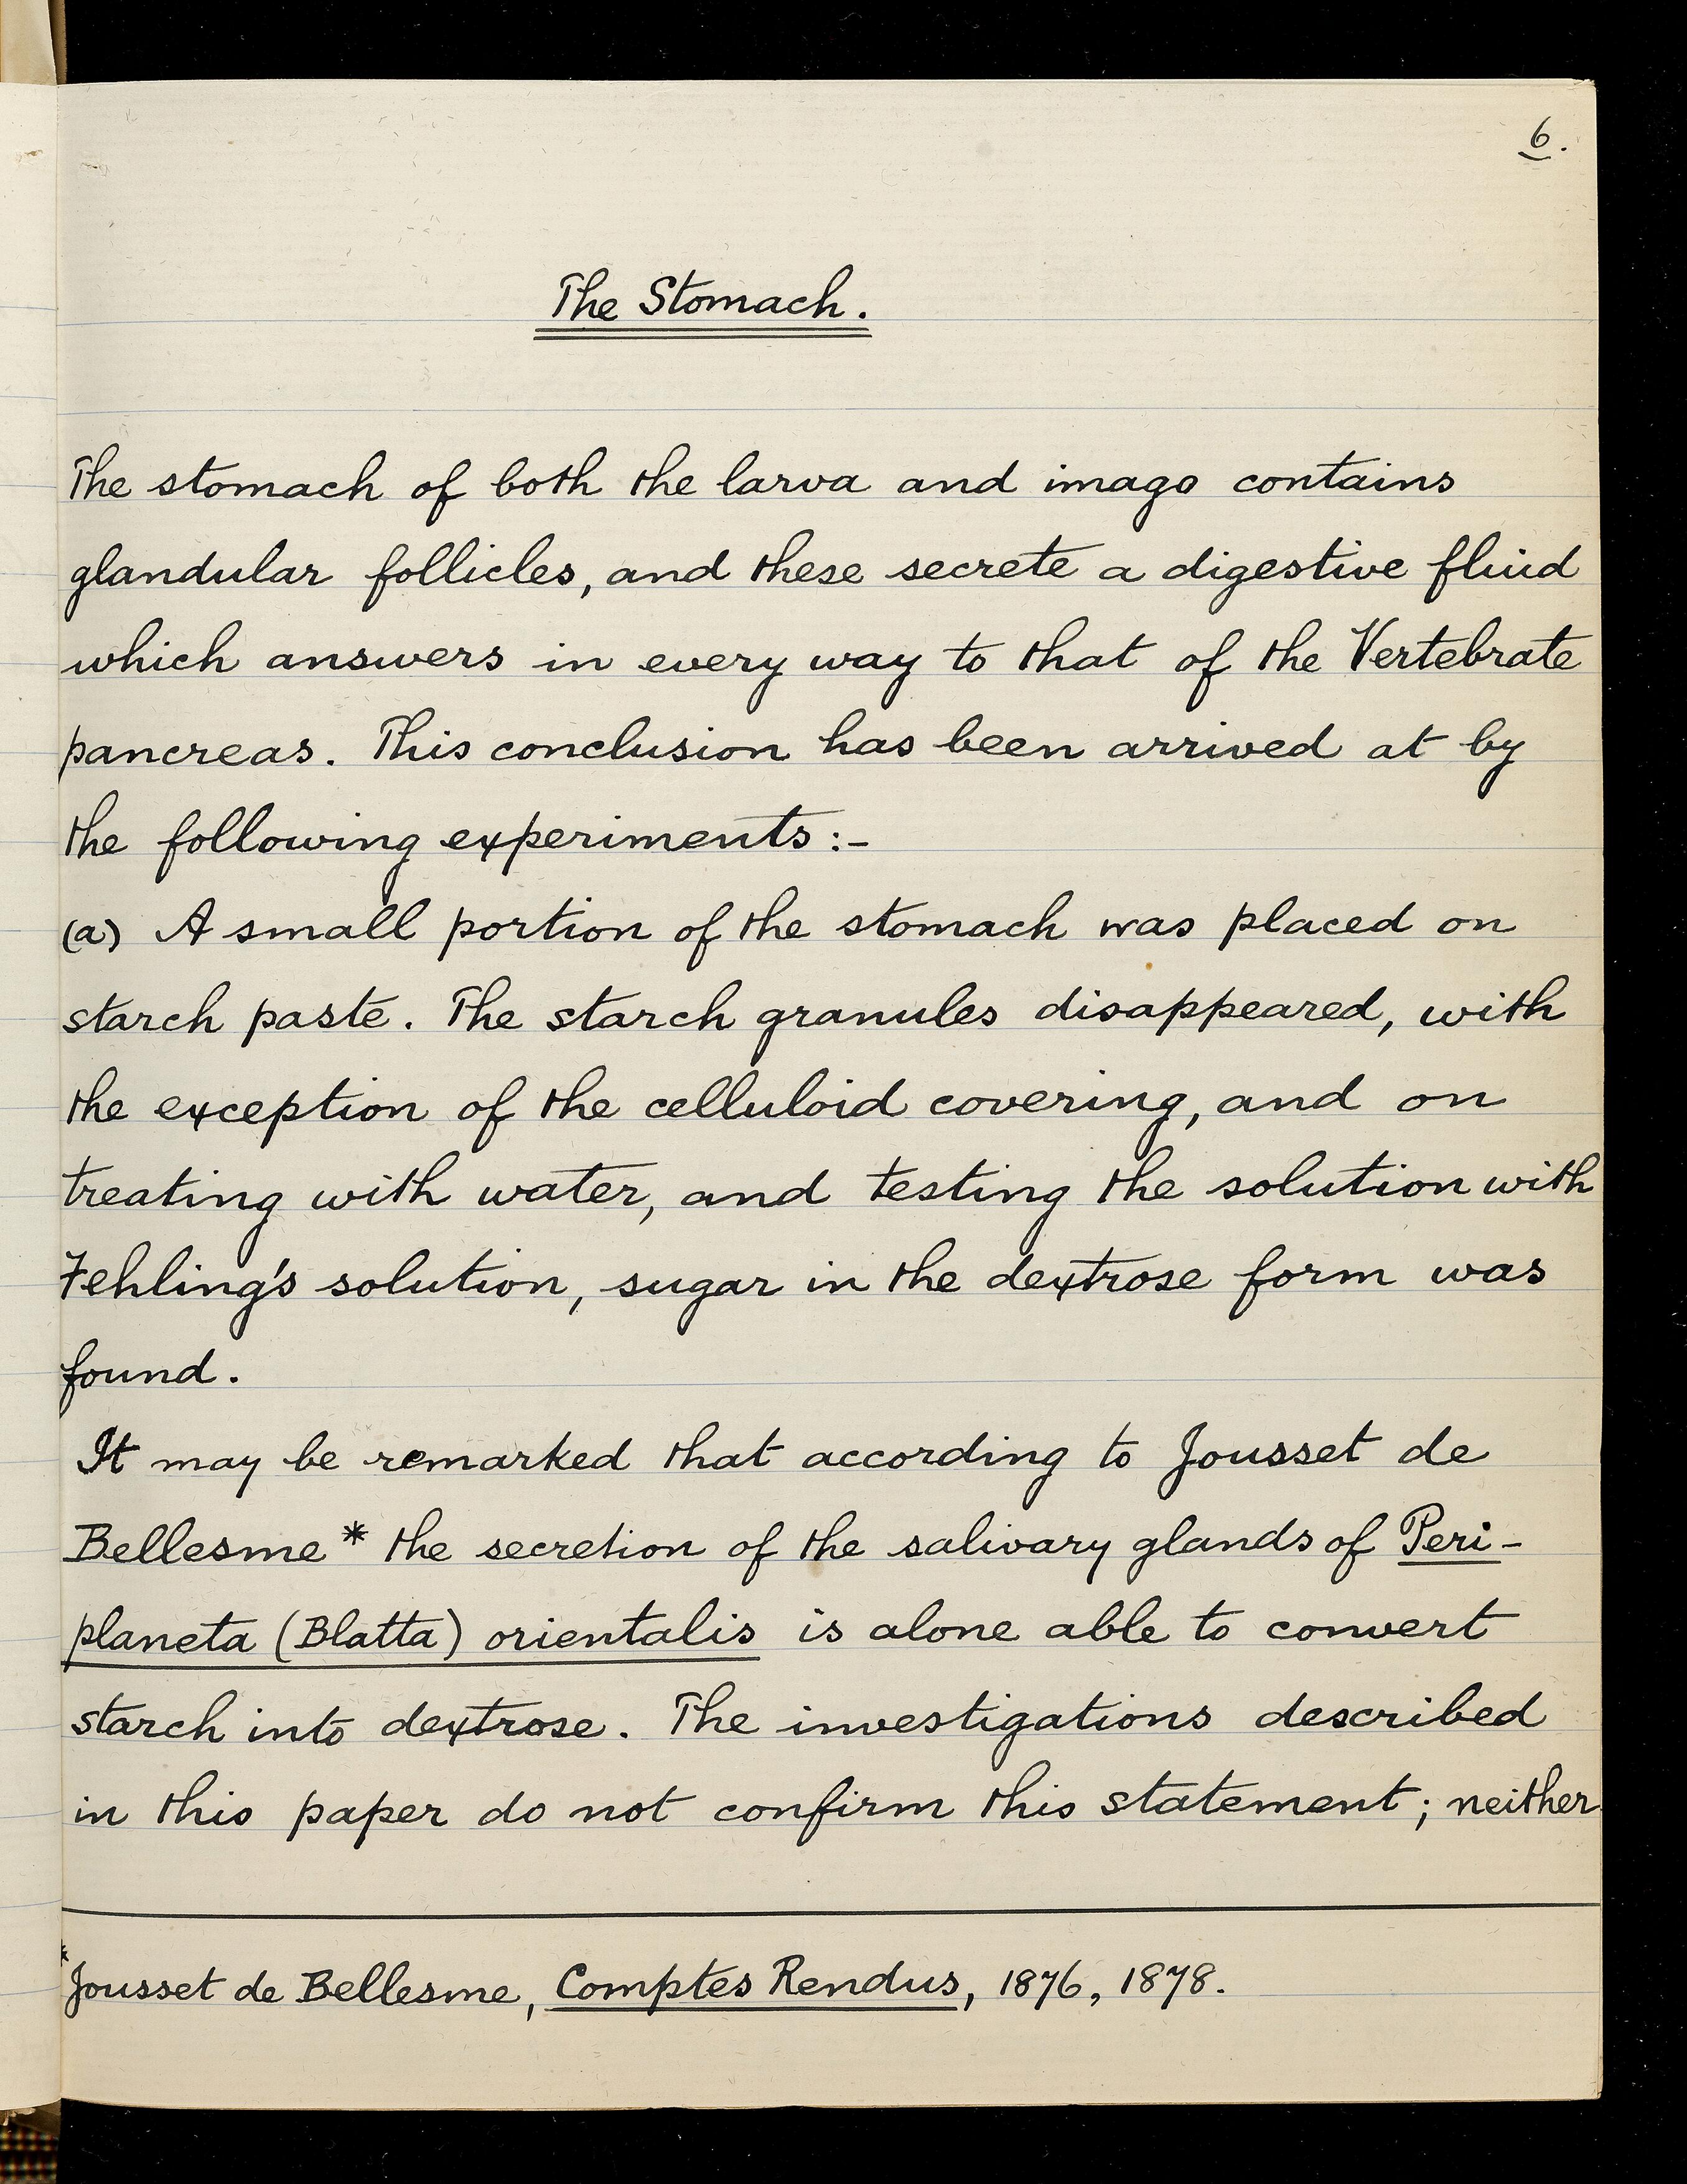 6.
The Stomach.
The stomach of both the larva and imago contains
glandular follicles, and these secrete a digestive fluid
which answers in every way to that of the Vertebrate
pancreas. This conclusion has been arrived at by
the following experiments:-
(a) A small portion of the stomach was placed on
starch paste. The starch granules disappeared, with
the exception of the celluloid covering, and on
treating with water, and testing the solution with
Fehling's solution, sugar in the dextrose form was
found.
It may be remarked that according to Jousset de
Bellesme* the secretion of the salivary glands of Peri-
planeta (Blatta) orientalis is alone able to convert
starch into dextrose. The investigations described
in this paper do not confirm this statement; neither
*Jousset de Bellesme, Comptes Rendus, 1876, 1878.